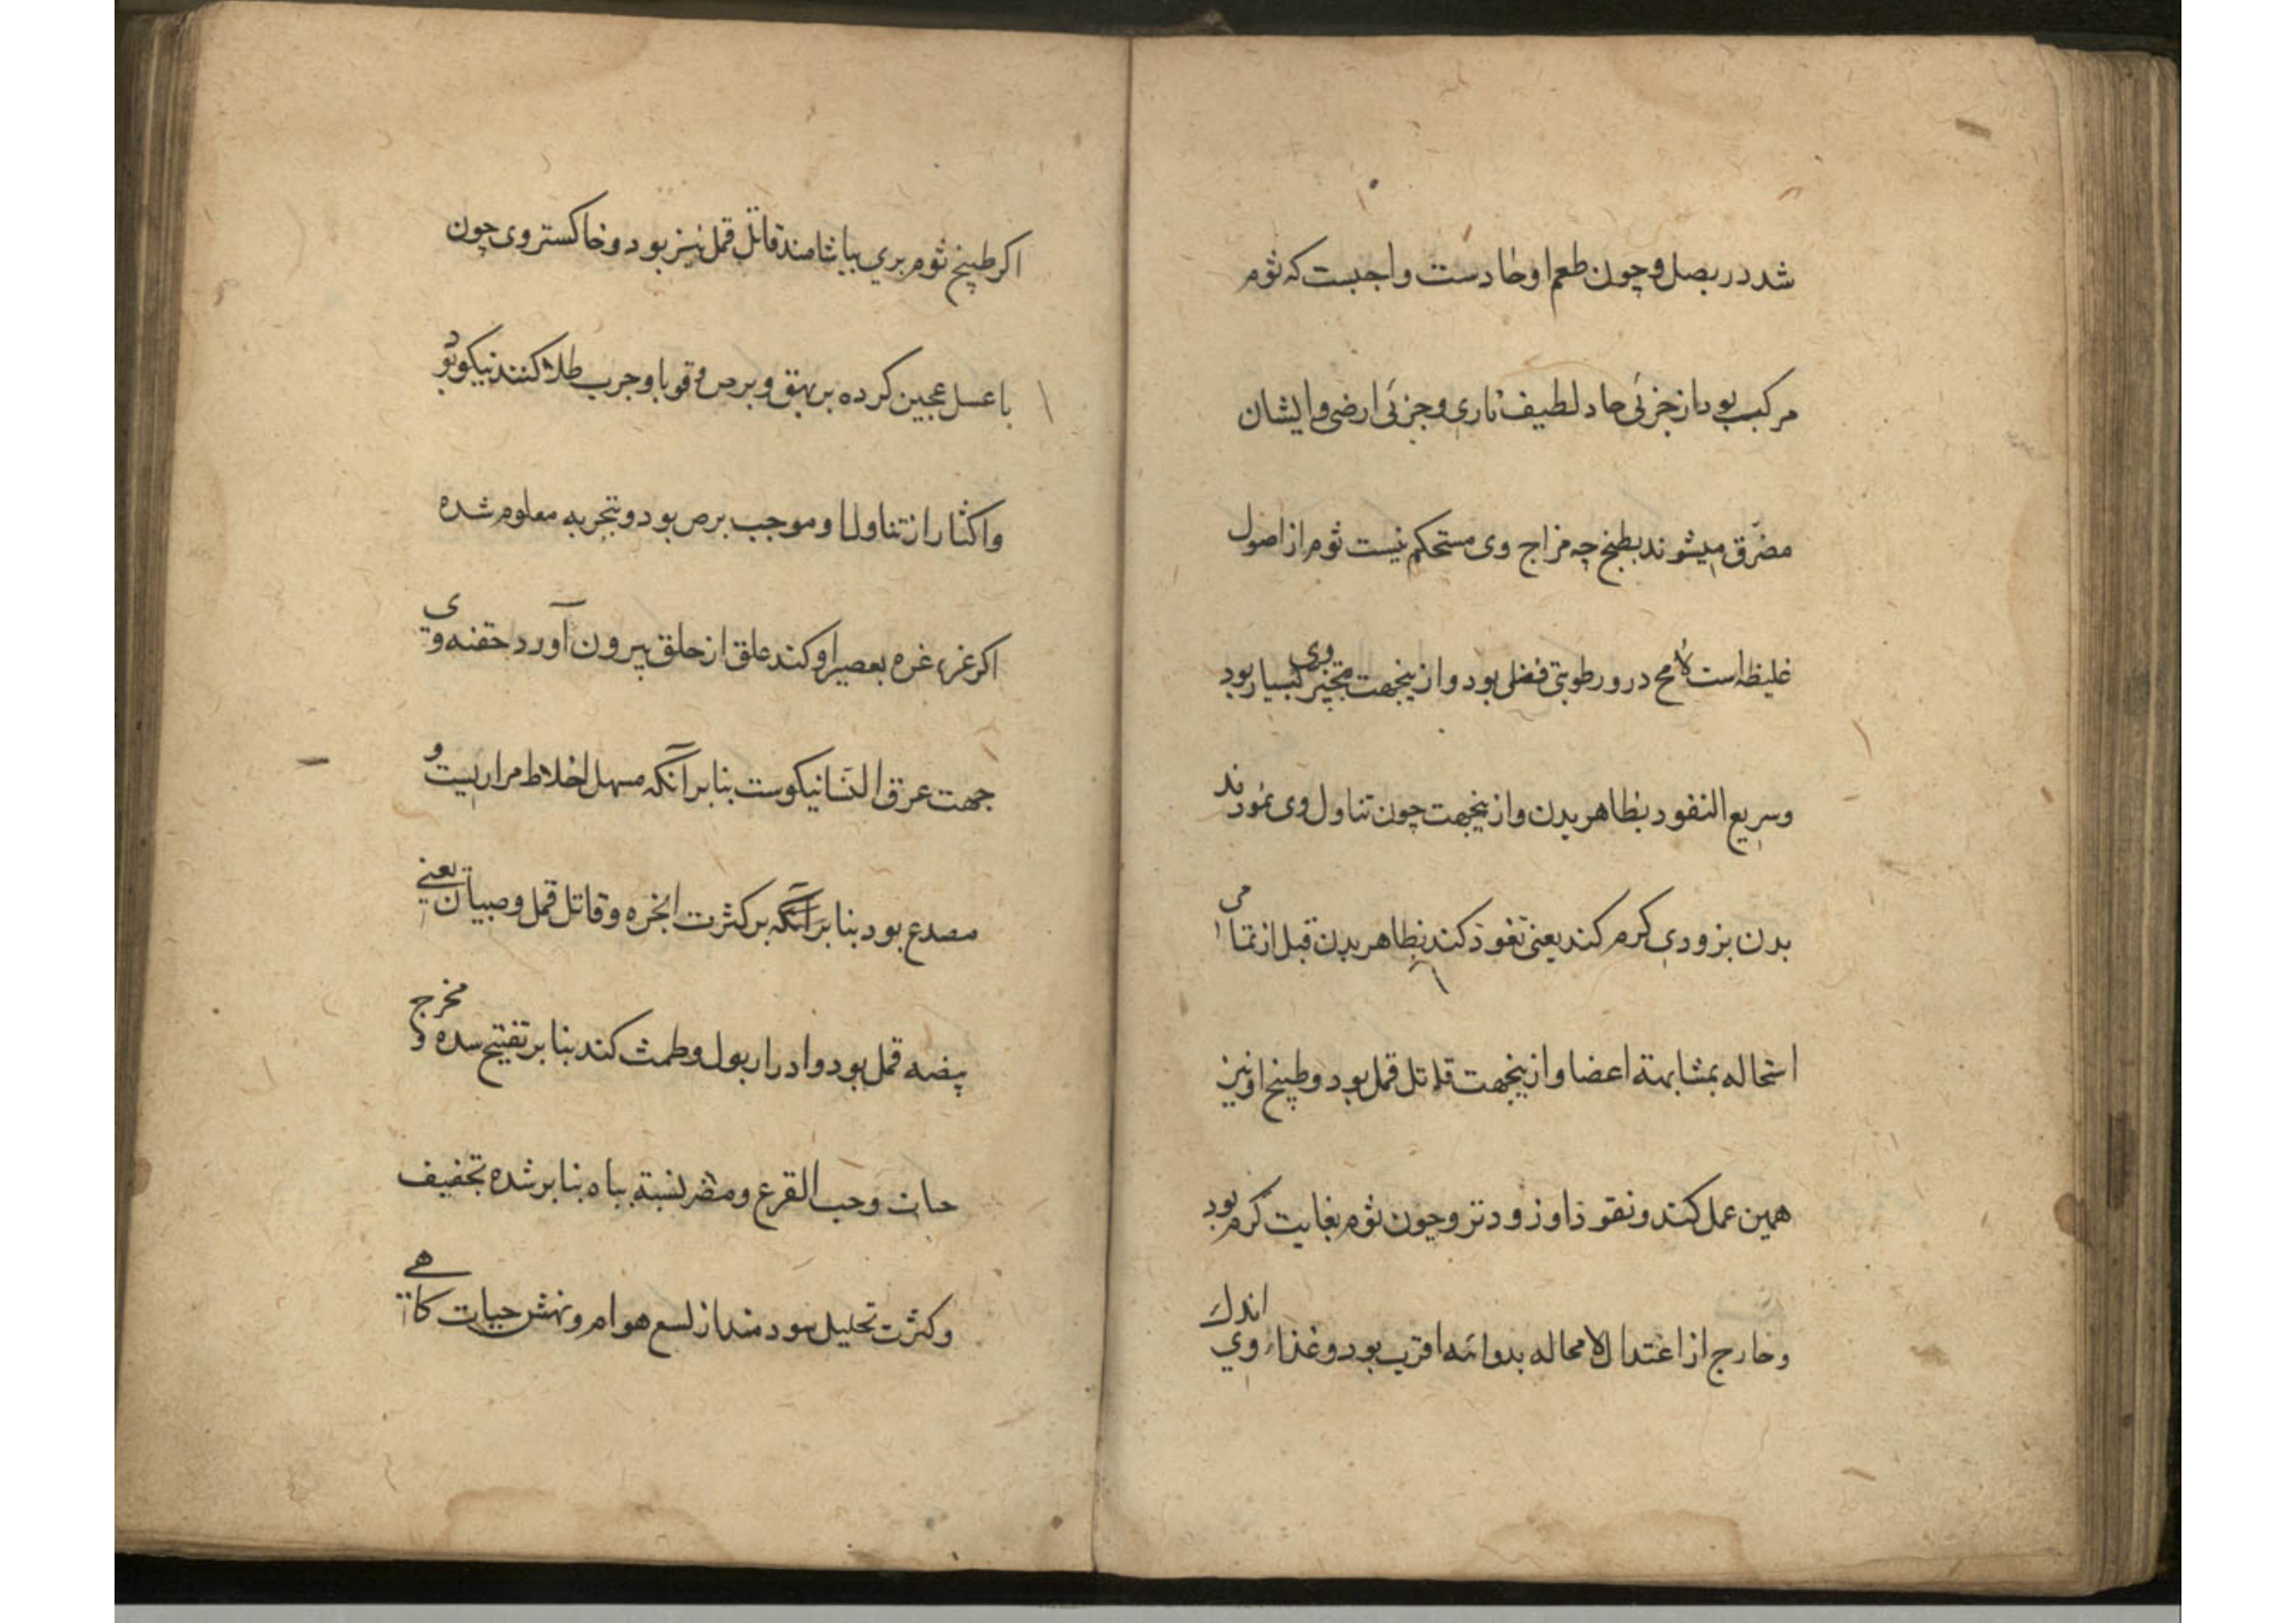 شد در بصل و چون طعم او حادست واجبست که ثوم
مرکب بود از جزئی حاد لطیف ناری و جزئی ارضی و ایشان
مضرق میشوند بطبخ چه مزاج وی مستحکم نیست ثوم از اصول
غلیظه است لامح در و رطوبتی فضلی بود و ازینجهت تبخیر وی بسیار بود
و سریع النفود بظاهر بدن و ازینجهت چون تناول وی نمودند
بدن بزودی کرم کند یعنی نغوذ کند بظاهر بدن قبل از تمامی
استحاله بمشابهة اعضا و ازینجهت قاتل قمل بود و طبیخ او نیز
همین عمل کند و نقوذ او زودتر و چون ثوم بغایت کرم بود
و خارج از اعتدال لا محاله بدوائیه اقرب بود و غذاء وی اندک
اکر طبیخ ثوم بری بیاشامند قاتل قمل نیز بود و خاکستر وی چون
با عسل عجین کرده بر بهق و برص و قوبا و جرب طلا کنند نیکو بود
و اکثار از تناول او موجب برص بود و بتجربه معلوم شده
اکر غرغره بعصیر او کند علق از حلق بیرون آورد حقنه وی
جهت عرق النسا نیکوست بنابر آنکه مسهل اخلاط مراریست و
مصدع بود بنابر آنکه بر کثرت ابخره و قاتل قمل و صیبان یعنی
بیضه قمل بود و ادرار بول و طمث کند بنابر تفتیح سده و مخرج
حیات و حب القرع و مضر نسبة بباه بنابر شده تجفیف
و کثرت تحلیل سودمند از لسع هوام و نهش حیات کاهی